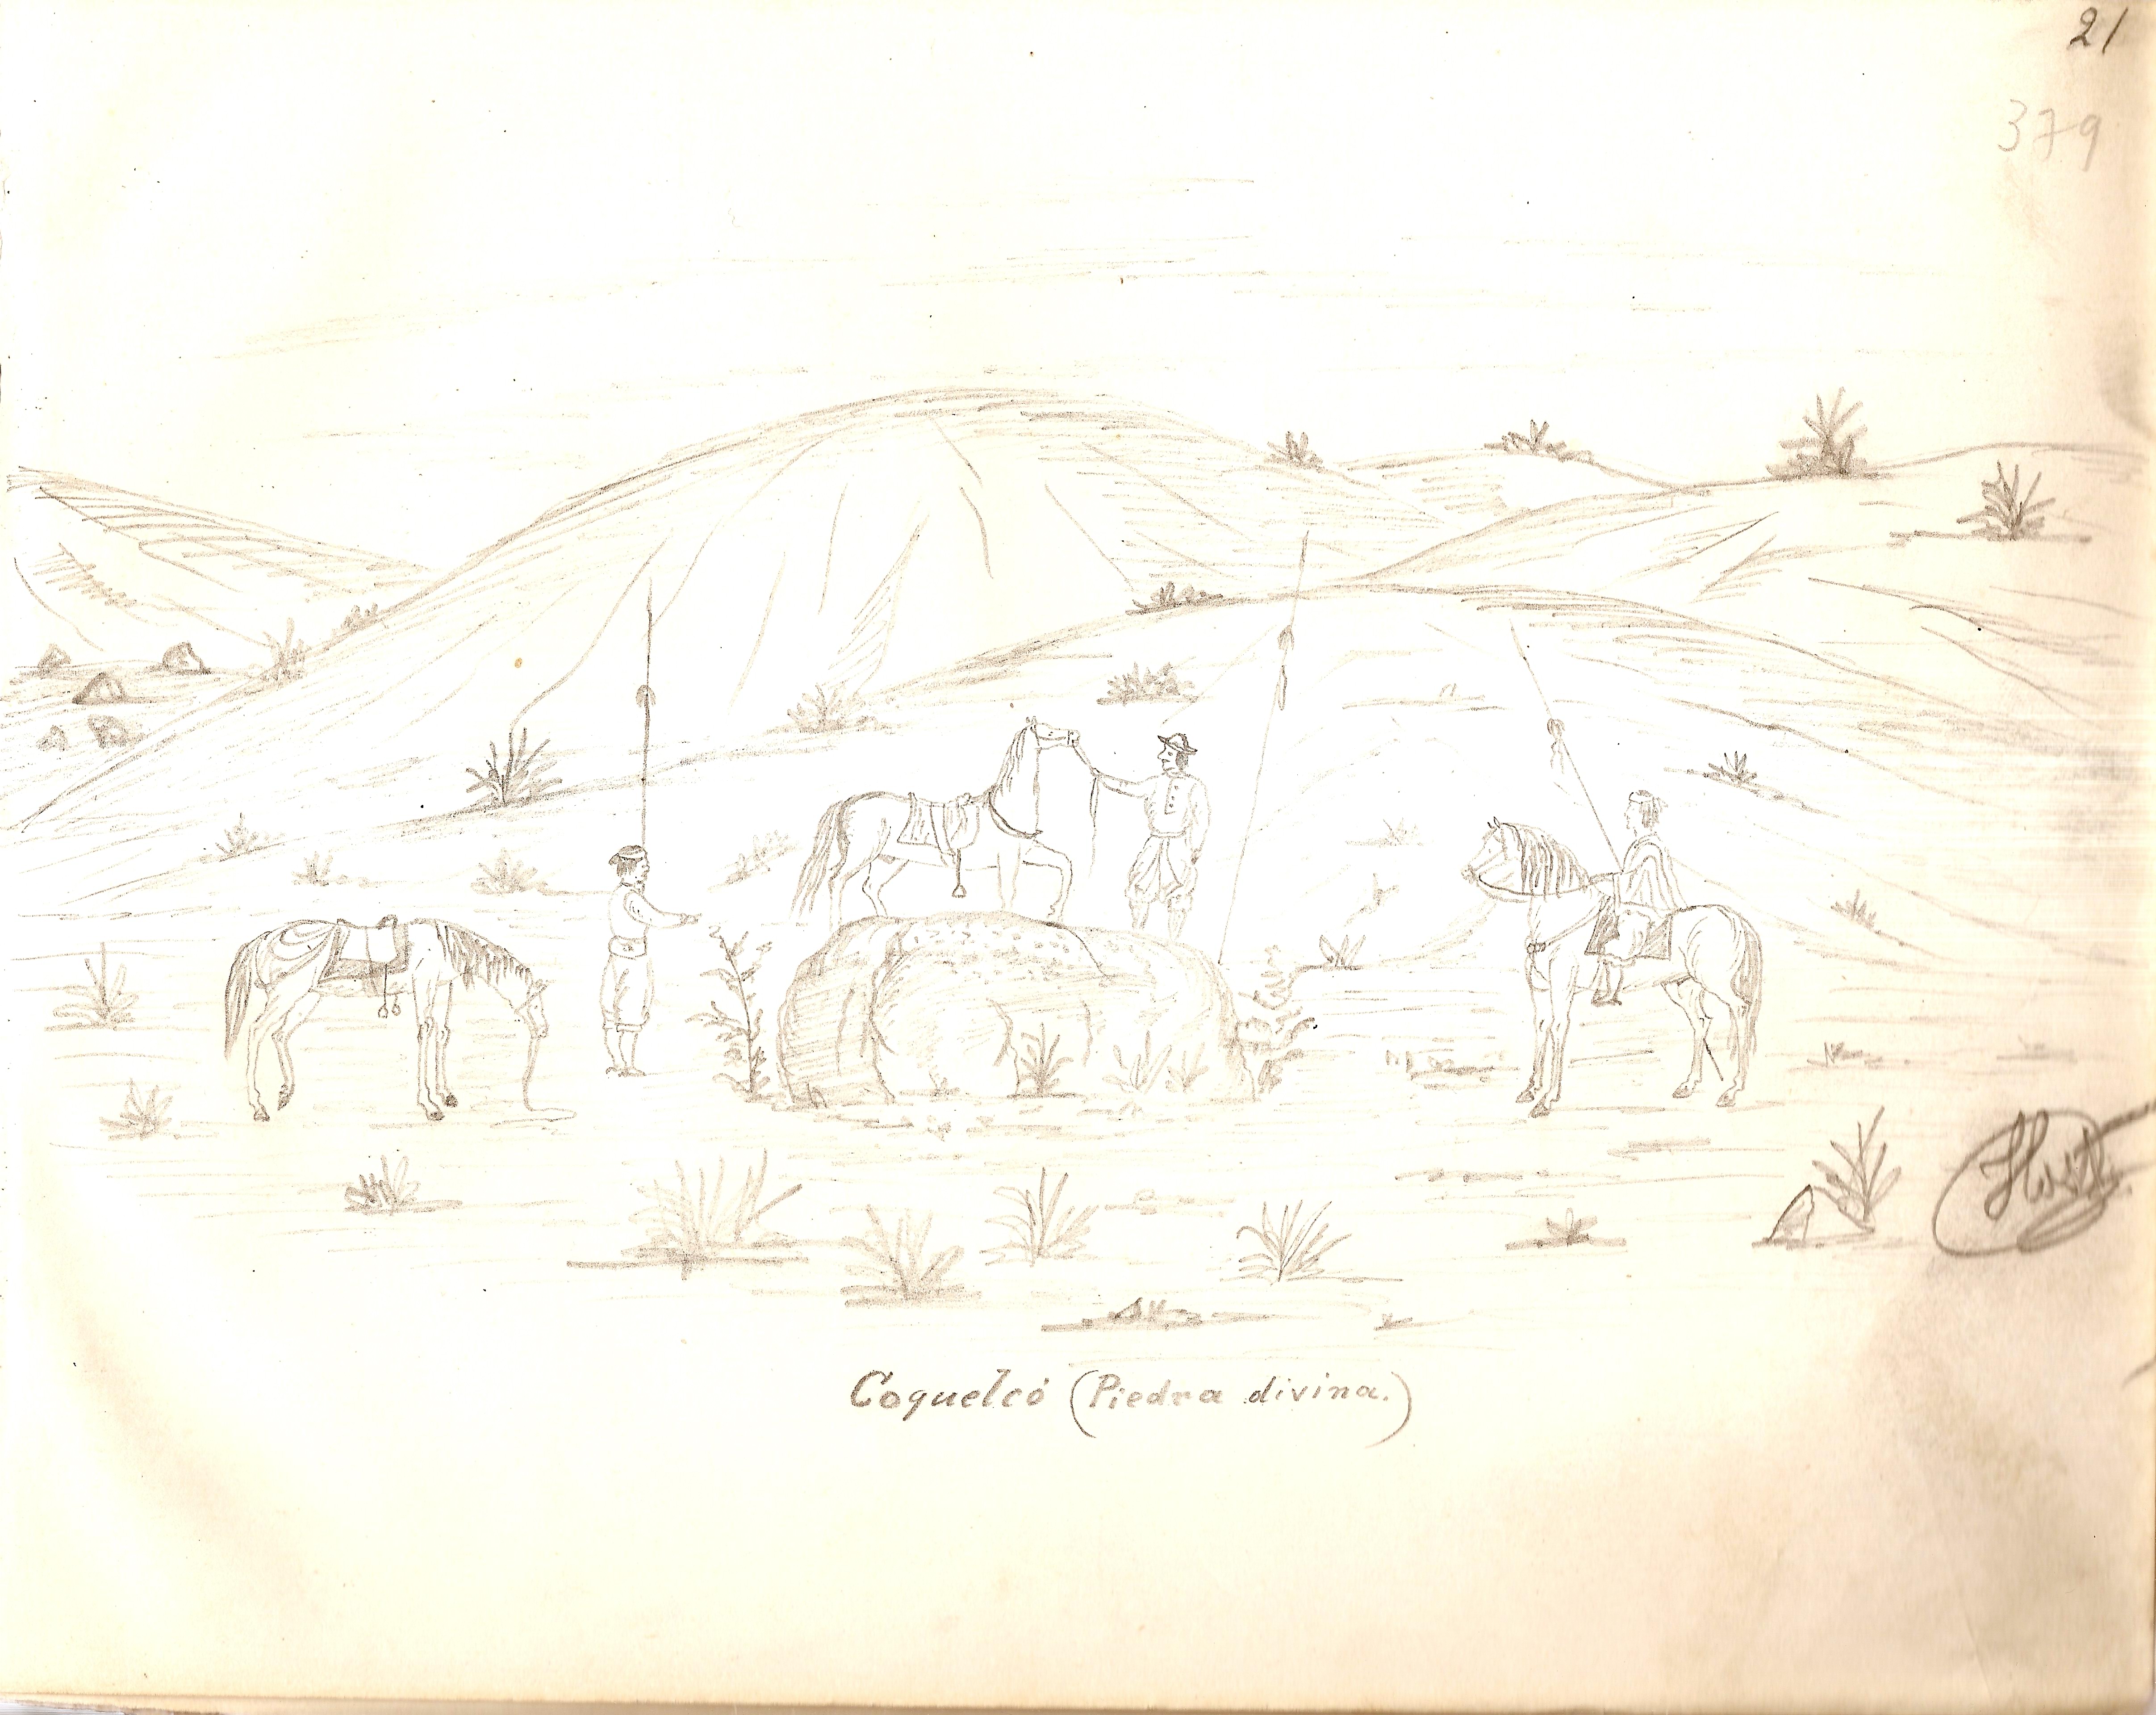 21
379
Coquelcó (Piedra divina.)